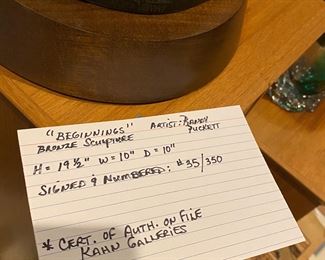 "BEGINNINGS" ARTIST: RANDY PUCKETT
BRONZE SCULPTURE
H = 19 1/2" W = 10" D = 10"
SIGNED & NUMBERED: # 35/350
* CERT. OF AUTH. ON FILE
KAHN GALLERIES